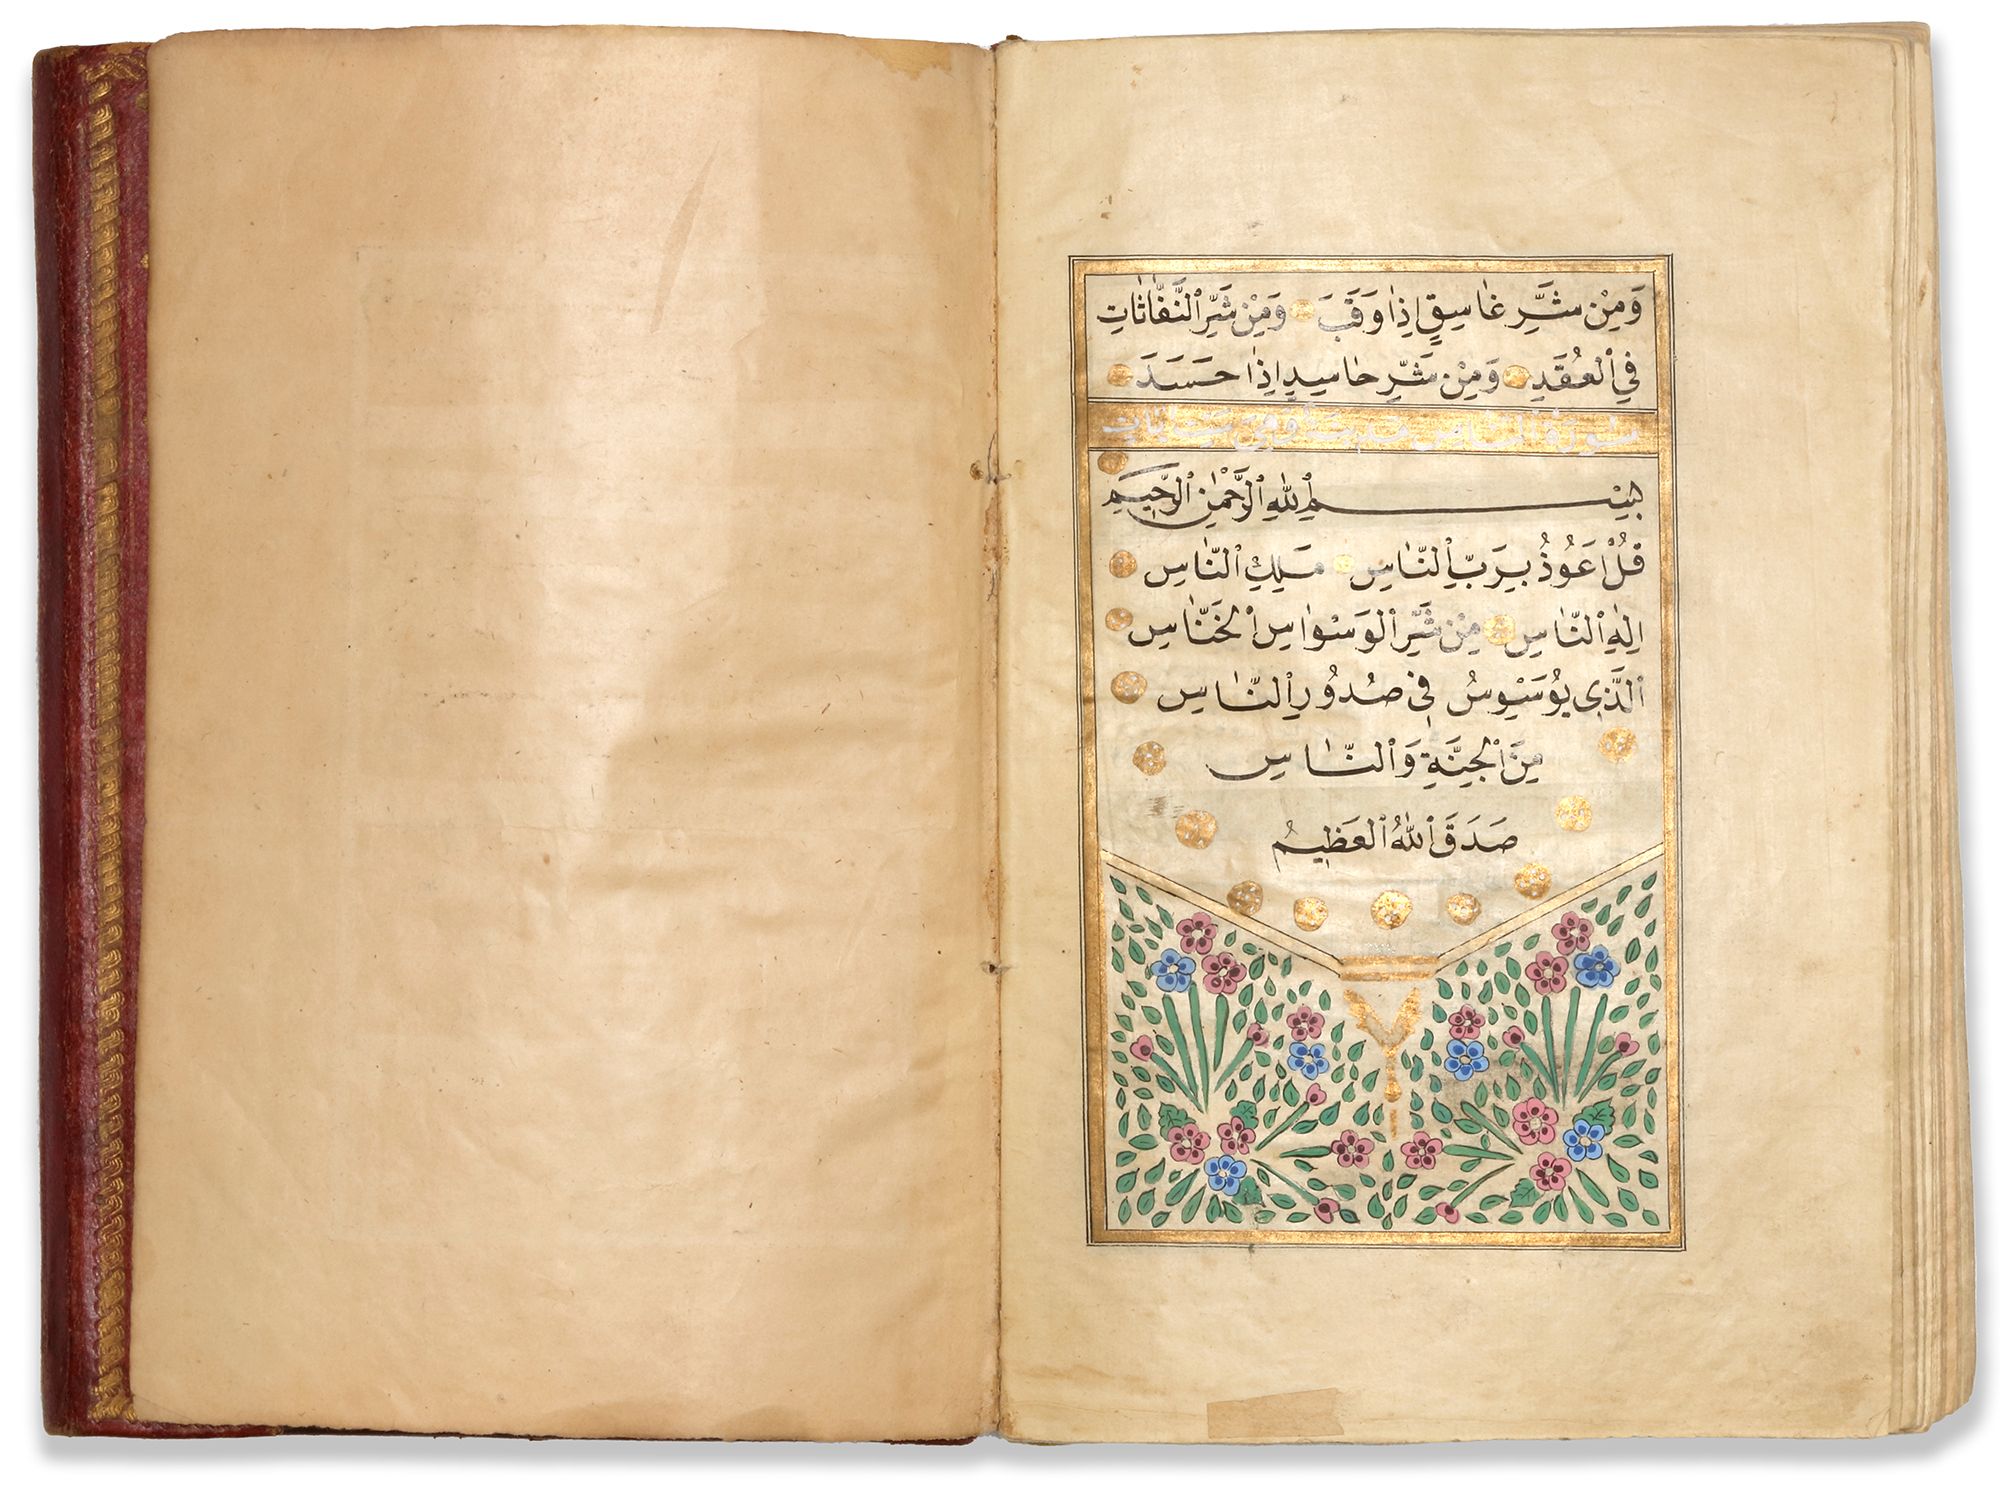 وَمِنْ شَرِّ غَاسِقٍ اِذَا وَقَبَ وَمِنْ شَرِّ النَّفَّاثَاتِ
فِي الْعُقَدِ وَمِنْ شَرِّ حَاسِدٍ اِذَا حَسَدَ
سورة الناس مدنية وهي ست آيات
بِسْمِ اللهِ الرَّحْمٰنِ الرَّحِيمِ
قُلْ اَعُوذُ بِرَبِّ النَّاسِ مَلِكِ النَّاسِ
اِلٰهِ النَّاسِ مِنْ شَرِّ الْوَسْوَاسِ الْخَنَّاسِ
الَّذِي يُوَسْوِسُ فِي صُدُورِ النَّاسِ
مِنَ الْجِنَّةِ وَالنَّاسِ
صَدَقَ اللهُ الْعَظِيمُ